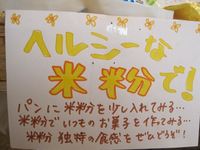 ヘルシーな
米粉で!
パンに米粉を少し入れてみる…
米粉でいつものお菓子を作ってみる…
米粉独特の食感をぜひどうぞ!